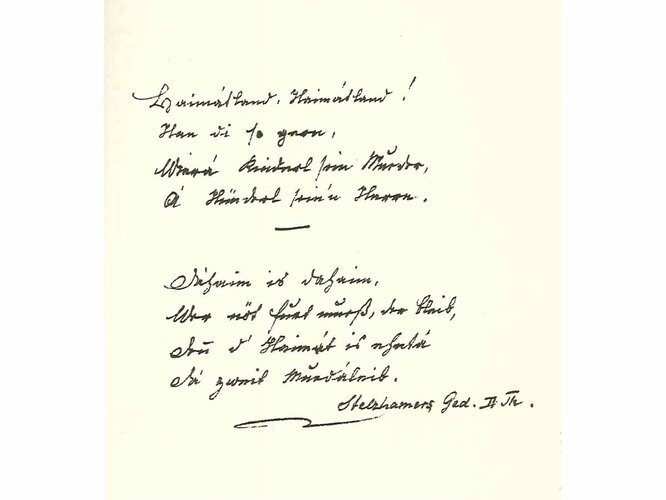 Haimátland, Haimátland!
Han di so gern,
Wiera Kinderl sein Mueder,
A' Hünderl sein'n Herrn.
Dáhaim is dahaim,
Wer nöt furt mueß, der bleib,
Denn d' Haimát is ehntá
Dá zweit Muedáleib.
Stelzhamers Ged. II Th.